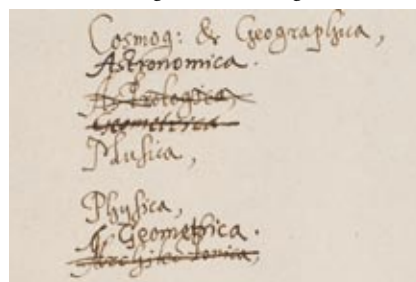 Cosmog: & Geographica,
Astronomica.
Astrologica,
Geometrica
Musica,
Physica,
Geometrica.
Architectonica,